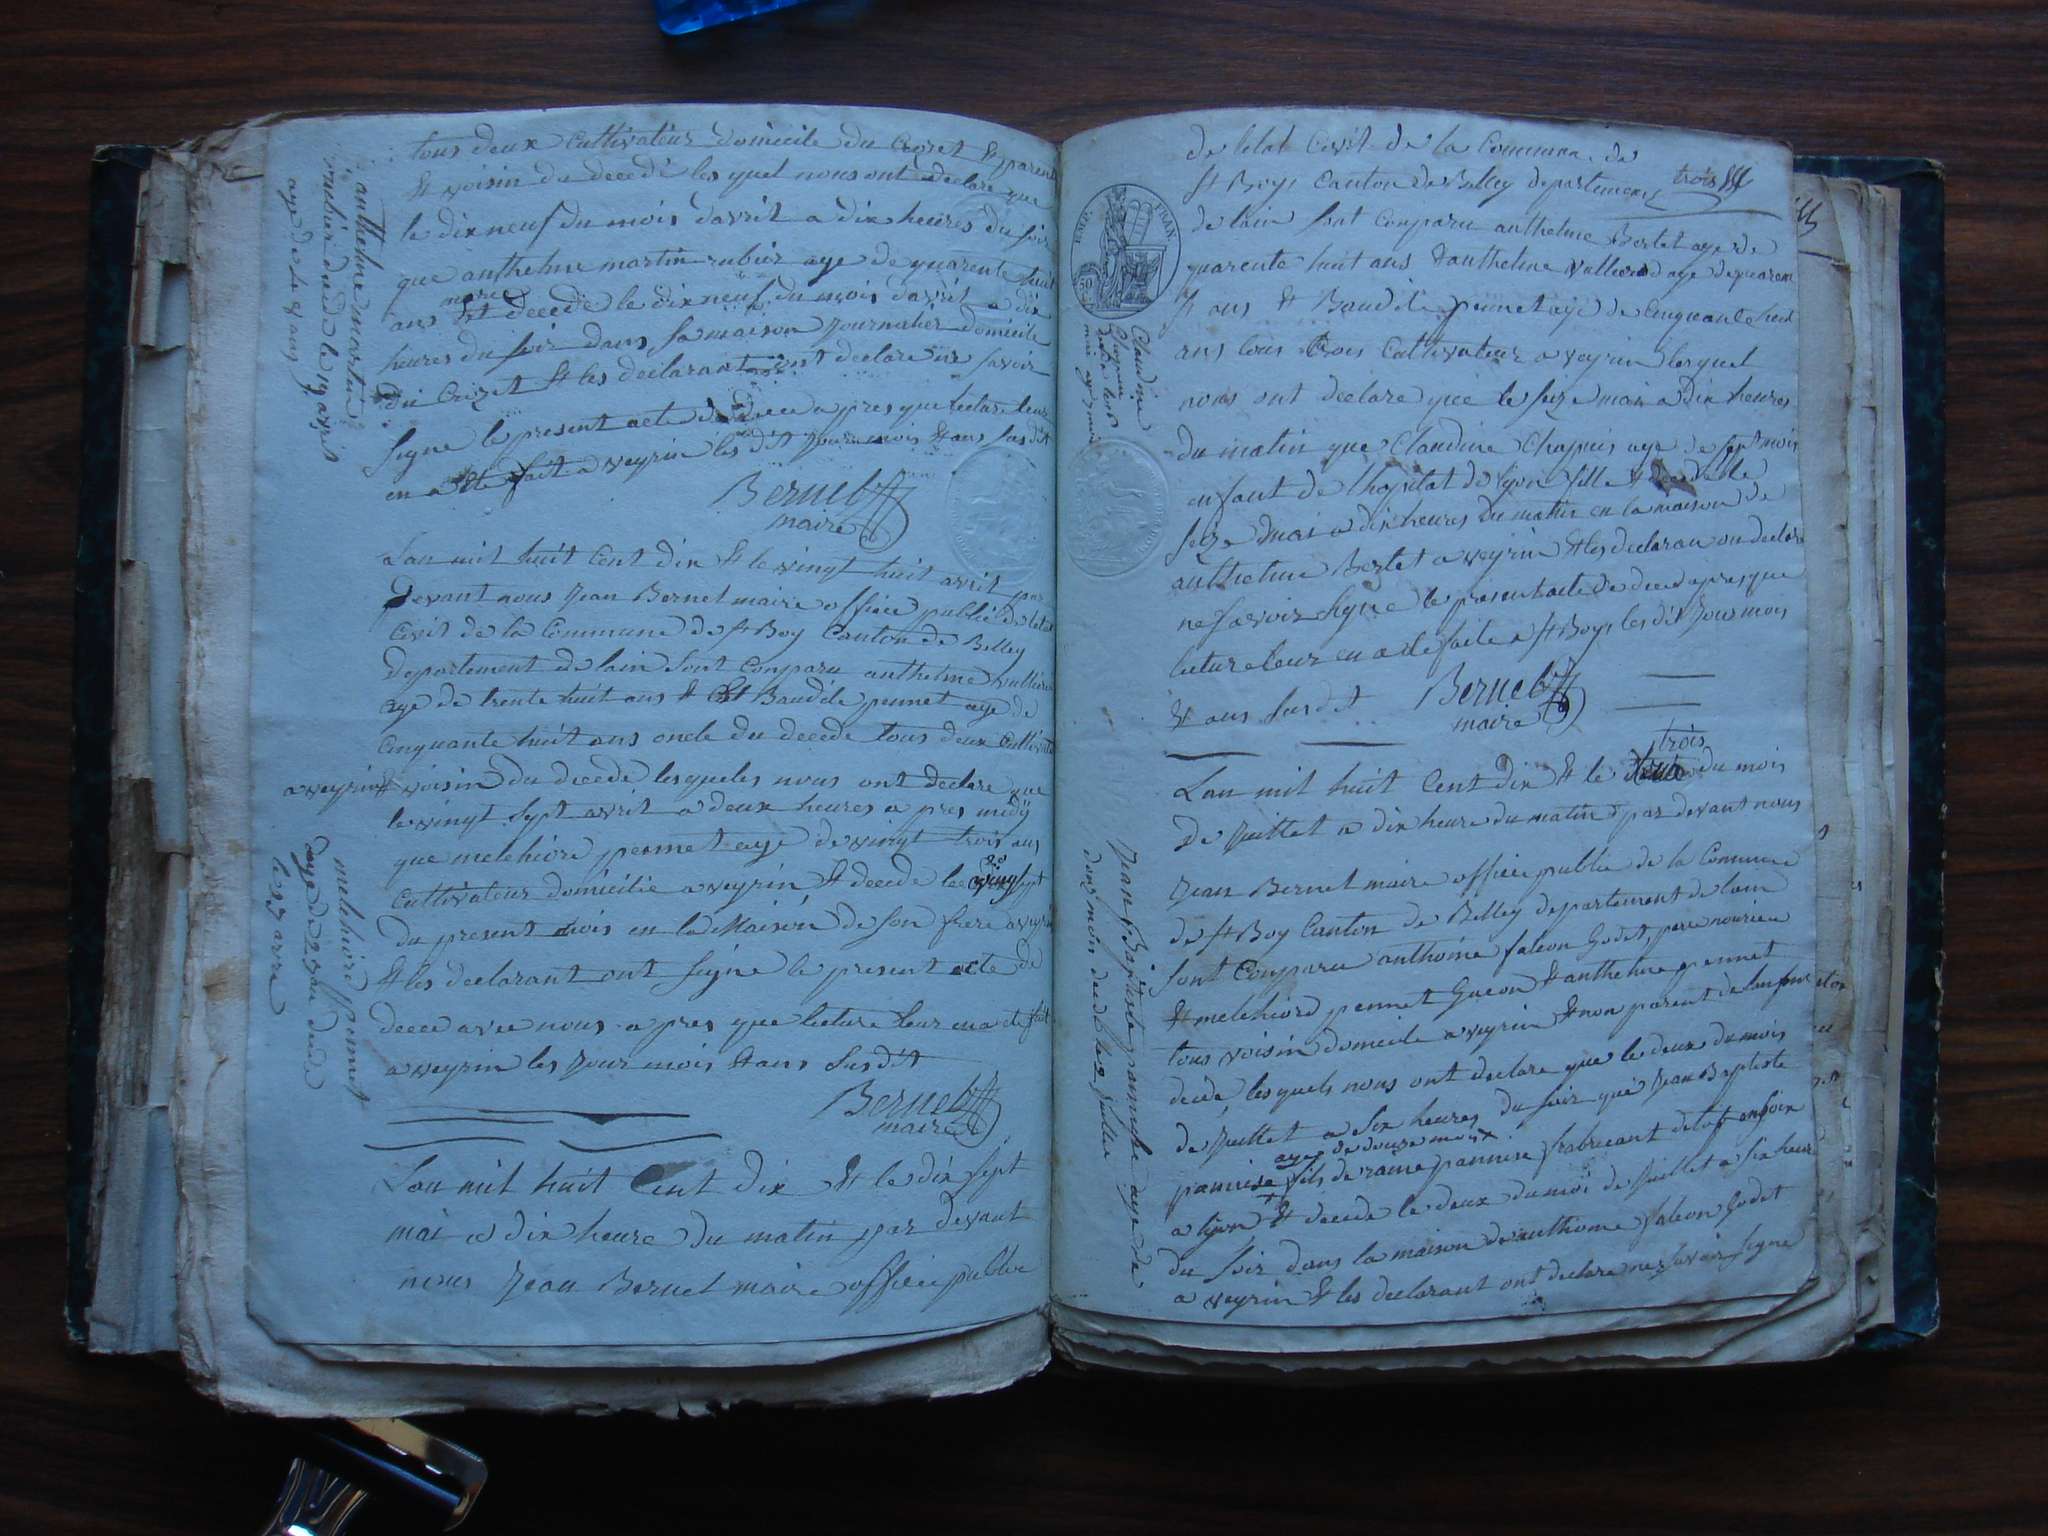 tous deux Cultivateur domicile du Crozet & parent
& voisin du decedé les quel nous ont declare que
le dix neuf du mois davril a dix heures du soir
que anthelme martin rubier aye de quarente huit
ans est decede le dix neuf du mois davril a dix
heures du soir dans sa maison journalier domicile
du Crozet & les declarant ont declare ne savoir
signe le present acte de decé apres que lecture leur
en a ete fait a veyrin les dit jour mois & ans sus dit
Bernet
maire
anthelme martin
rubier decede le 19 avril
aye de 48 ans
Lan mil huit Cent dix & le vingt huit avril par
devant nous jean Bernet maire officié publié de letat
Civil de la Commune de St Boy Canton de Belley
departement de lain sont Comparu anthelme vullierod
aye de trente huit ans & Baudile pernet aye de
Cinquante huit ans oncle du decede tous deux Cultivate
a veyrin & voisin du decede lesqueles nous ont declare que
le vingt sept avril a deux heures a pres midÿ
que melchiore pernet aye de vingt trois ans
Cultivateur domicilie a veyrin & decede le vingt sept
du present mois en la Maison de son frere a veyrin
& les declarant ont signe le present acte de
decee avec nous a pres que lecture leur en a ete fait
a veyrin les jour mois & ans susdit
Bernet
maire
melchiore pernet
aye de 23 ans decede
le 27 avril
Lan mil huit Cent dix & le dix sept
mai a dix heure du matin par devant
nous jean Bernet maire officié publie
de letat Civil de la Commune de
St Boys Canton de Belley departement
trois
de lain sont Comparu anthelme Bertet aye de
quarente huit ans & anthelme vullierod aye de quaren
t ans & Baudile pernet aye de Cinquante huit
ans tous trois Cultivateur a veyrin lesquel
nous ont declare que le seize mai a dix heures
du matin que Claudine Chapuis aye de sept mois
enfant de lhopital de lyon fille & decede le
seize mai a dix heures du matin en la maison de
anthelme Bertet a veyrin & les declaran on declare
ne savoir signe le present acte de decé apres que
lecture leur en a ete faite a St Boys les dit jour mois
& ans susdit
Bernet
maire
EMP. FRAN.
50
Claudine
Chapuis
decede le 16
mai aye 7 mois
Lan mil huit Cent dix & le trois du mois
de juillet a dix heure du matin par devant nous
jean Bernet maire officié publie de la Commune
de St Boy Canton de Belley departement de lain
sont Comparu anthoine falcon Godet, pere nouricie
& melchiord pernet Gueon & anthelme pernet
tous voisin domicile a veyrin & non parent de lenfant
decede lesquels nous ont declare que le deux du mois
de juillet a six heures du soir que jean Baptiste
aye de douse mois
pannise fils de rame pannise fabricant detof en soie
a lyon & decede le deux du moi de juillet a six heure
du soir dans la maison de anthoine falcon Godet
a veyrin & les declarant ont declare ne savoir signe
jean Baptiste pannise aye de
douz mois decede le 2 juillet